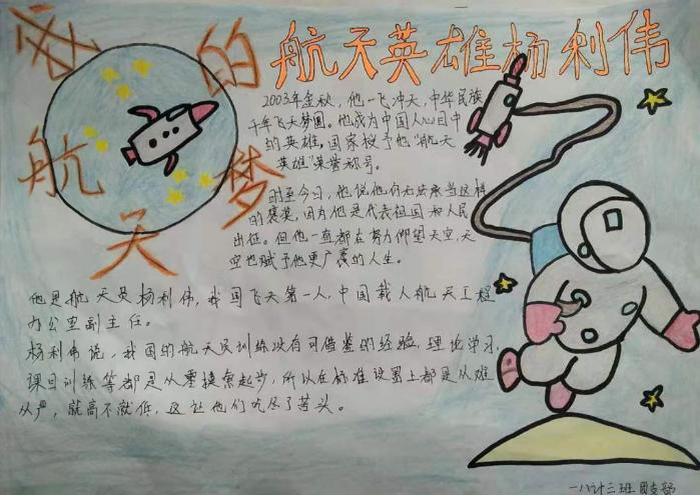 我的航天梦
航天英雄杨利伟
2003年金秋,他一飞冲天,中华民族
千年飞天梦圆。他成为中国人心目中
的英雄,国家授予他“航天
英雄”荣誉称号。
时至今日,他说他们无法承当这样
的褒奖,因为他是代表祖国和人民
出征。但他一直都在努力仰望天空,天
空也赋予他更广袤的人生。
他是航天员杨利伟,我国飞天第一人,中国载人航天工程
办公室副主任。
杨利伟说,我国的航天员训练没有可借鉴的经验,理论学习,
课目训练等都是从零摸索起步,所以在标准设置上都是从难
从严,就高不就低,这让他们吃尽了苦头。
一八计三班 团支部